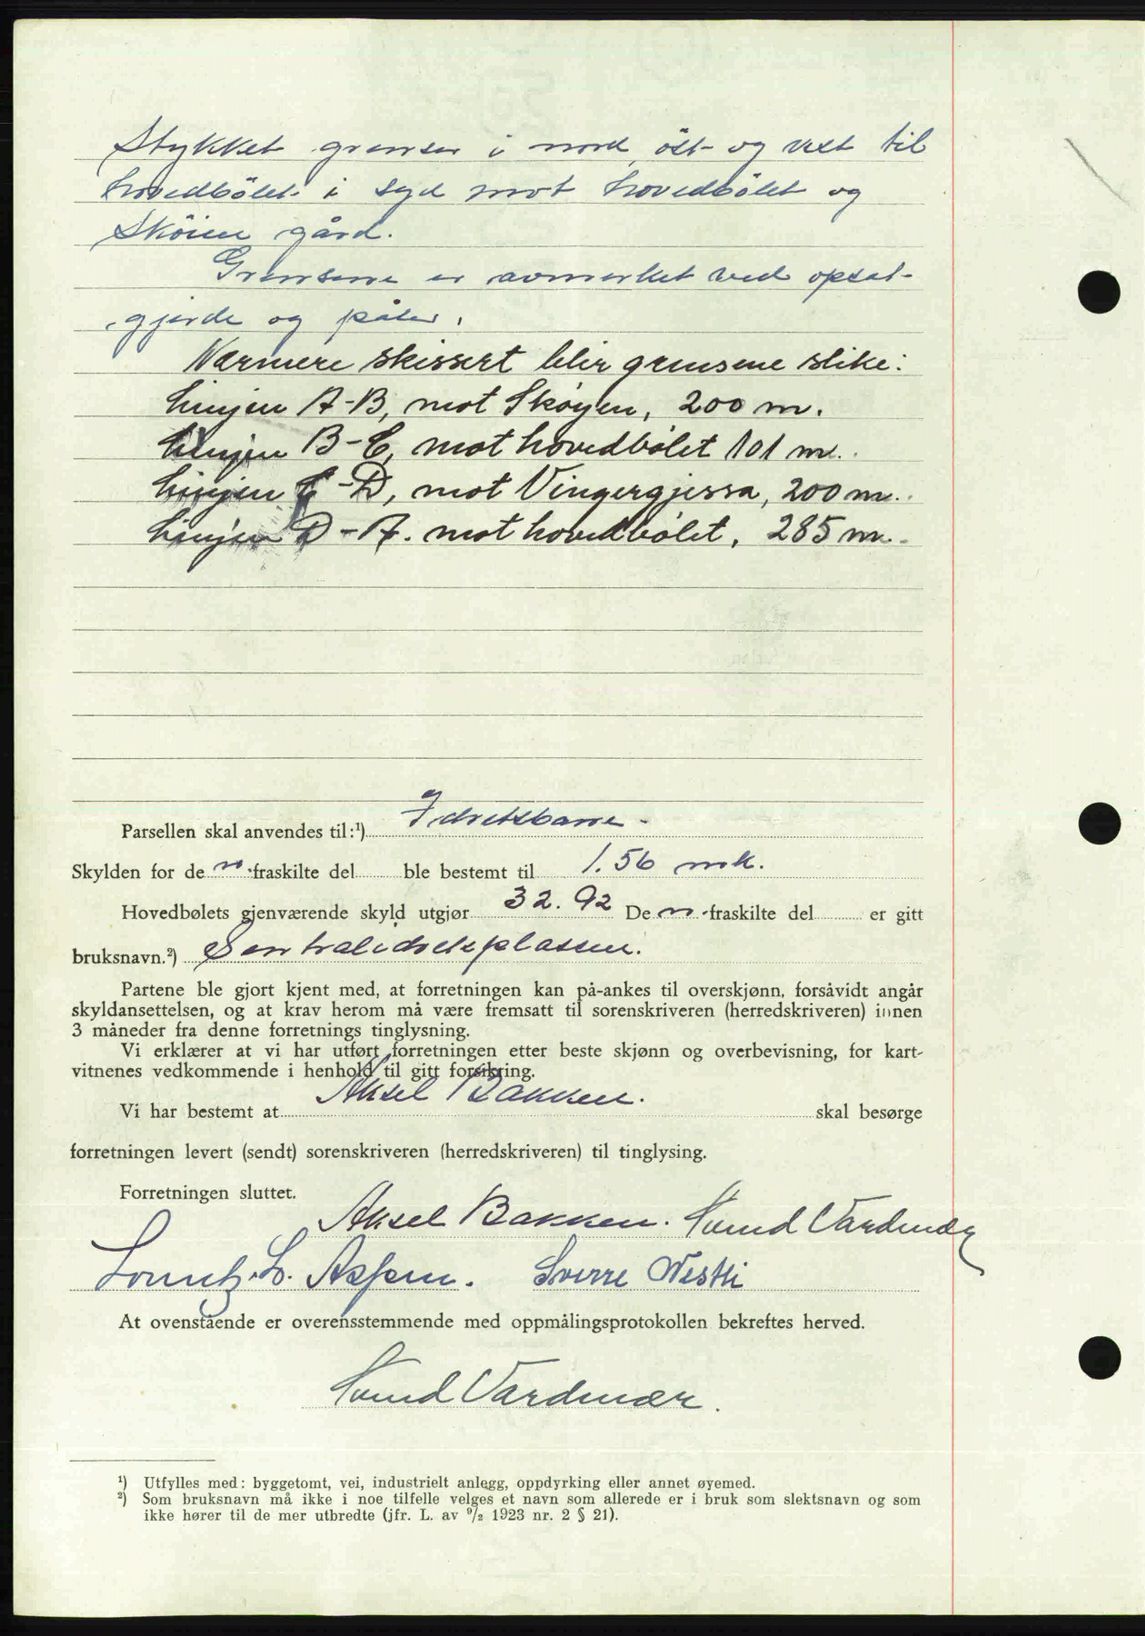 Stykket grenser i nord, öst- og vest til
hovedbölet i syd mot hovedbölet og
Sköien gård.
Grensene er avmerket ved opsat-
gjerde og påler.
Nærmere skissert blir grensene slike:
Linjen A-B, mot Skøyen, 200 m.
Linjen B-C, mot hovedbølet 101 m.
Linjen C-D, mot Vingergjessa, 200 m.
Linjen D-A. mot hovedbølet, 285 m.
Parsellen skal anvendes til:¹) Idretsbane -
Skylden for de n fraskilte del ble bestemt til 1.56 mk.
Hovedbølets gjenværende skyld utgjør 32.92 De n -fraskilte del er gitt
bruksnavn.²) Sentralidretsplassen.
Partene ble gjort kjent med, at forretningen kan på-ankes til overskjønn, forsåvidt angår
skyldansettelsen, og at krav herom må være fremsatt til sorenskriveren (herredskriveren) innen
3 måneder fra denne forretnings tinglysning.
Vi erklærer at vi har utført forretningen etter beste skjønn og overbevisning, for kart-
vitnenes vedkommende i henhold til gitt forsikring.
Vi har bestemt at Aksel Bakken. skal besørge
forretningen levert (sendt) sorenskriveren (herredskriveren) til tinglysing.
Forretningen sluttet.
Aksel Bakken. Vardenær
Lorentz. L. Aspen. Sverre Westli
At ovenstående er overensstemmende med oppmålingsprotokollen bekreftes herved.
Vardenær.
¹) Utfylles med: byggetomt, vei, industrielt anlegg, oppdyrking eller annet øyemed.
²) Som bruksnavn må ikke i noe tilfelle velges et navn som allerede er i bruk som slektsnavn og som
ikke hører til de mer utbredte (jfr. L. av ⁹/₂ 1923 nr. 2 § 21).